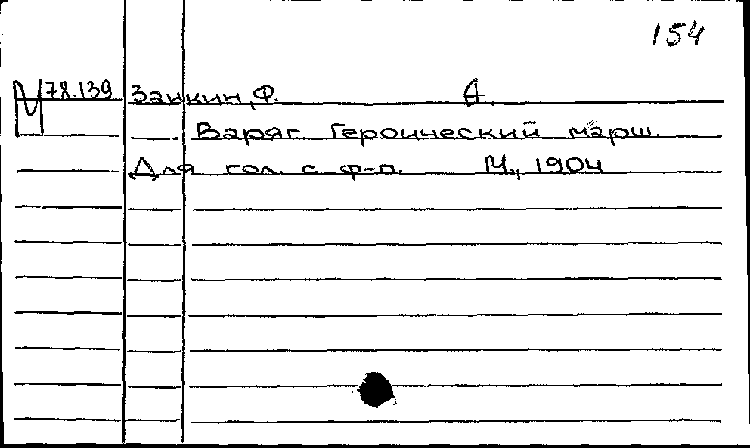 154
М 78.139 Заикин, Ф. А.
Варяг. Героический марш.
Для гол. с ф-п. М., 1904